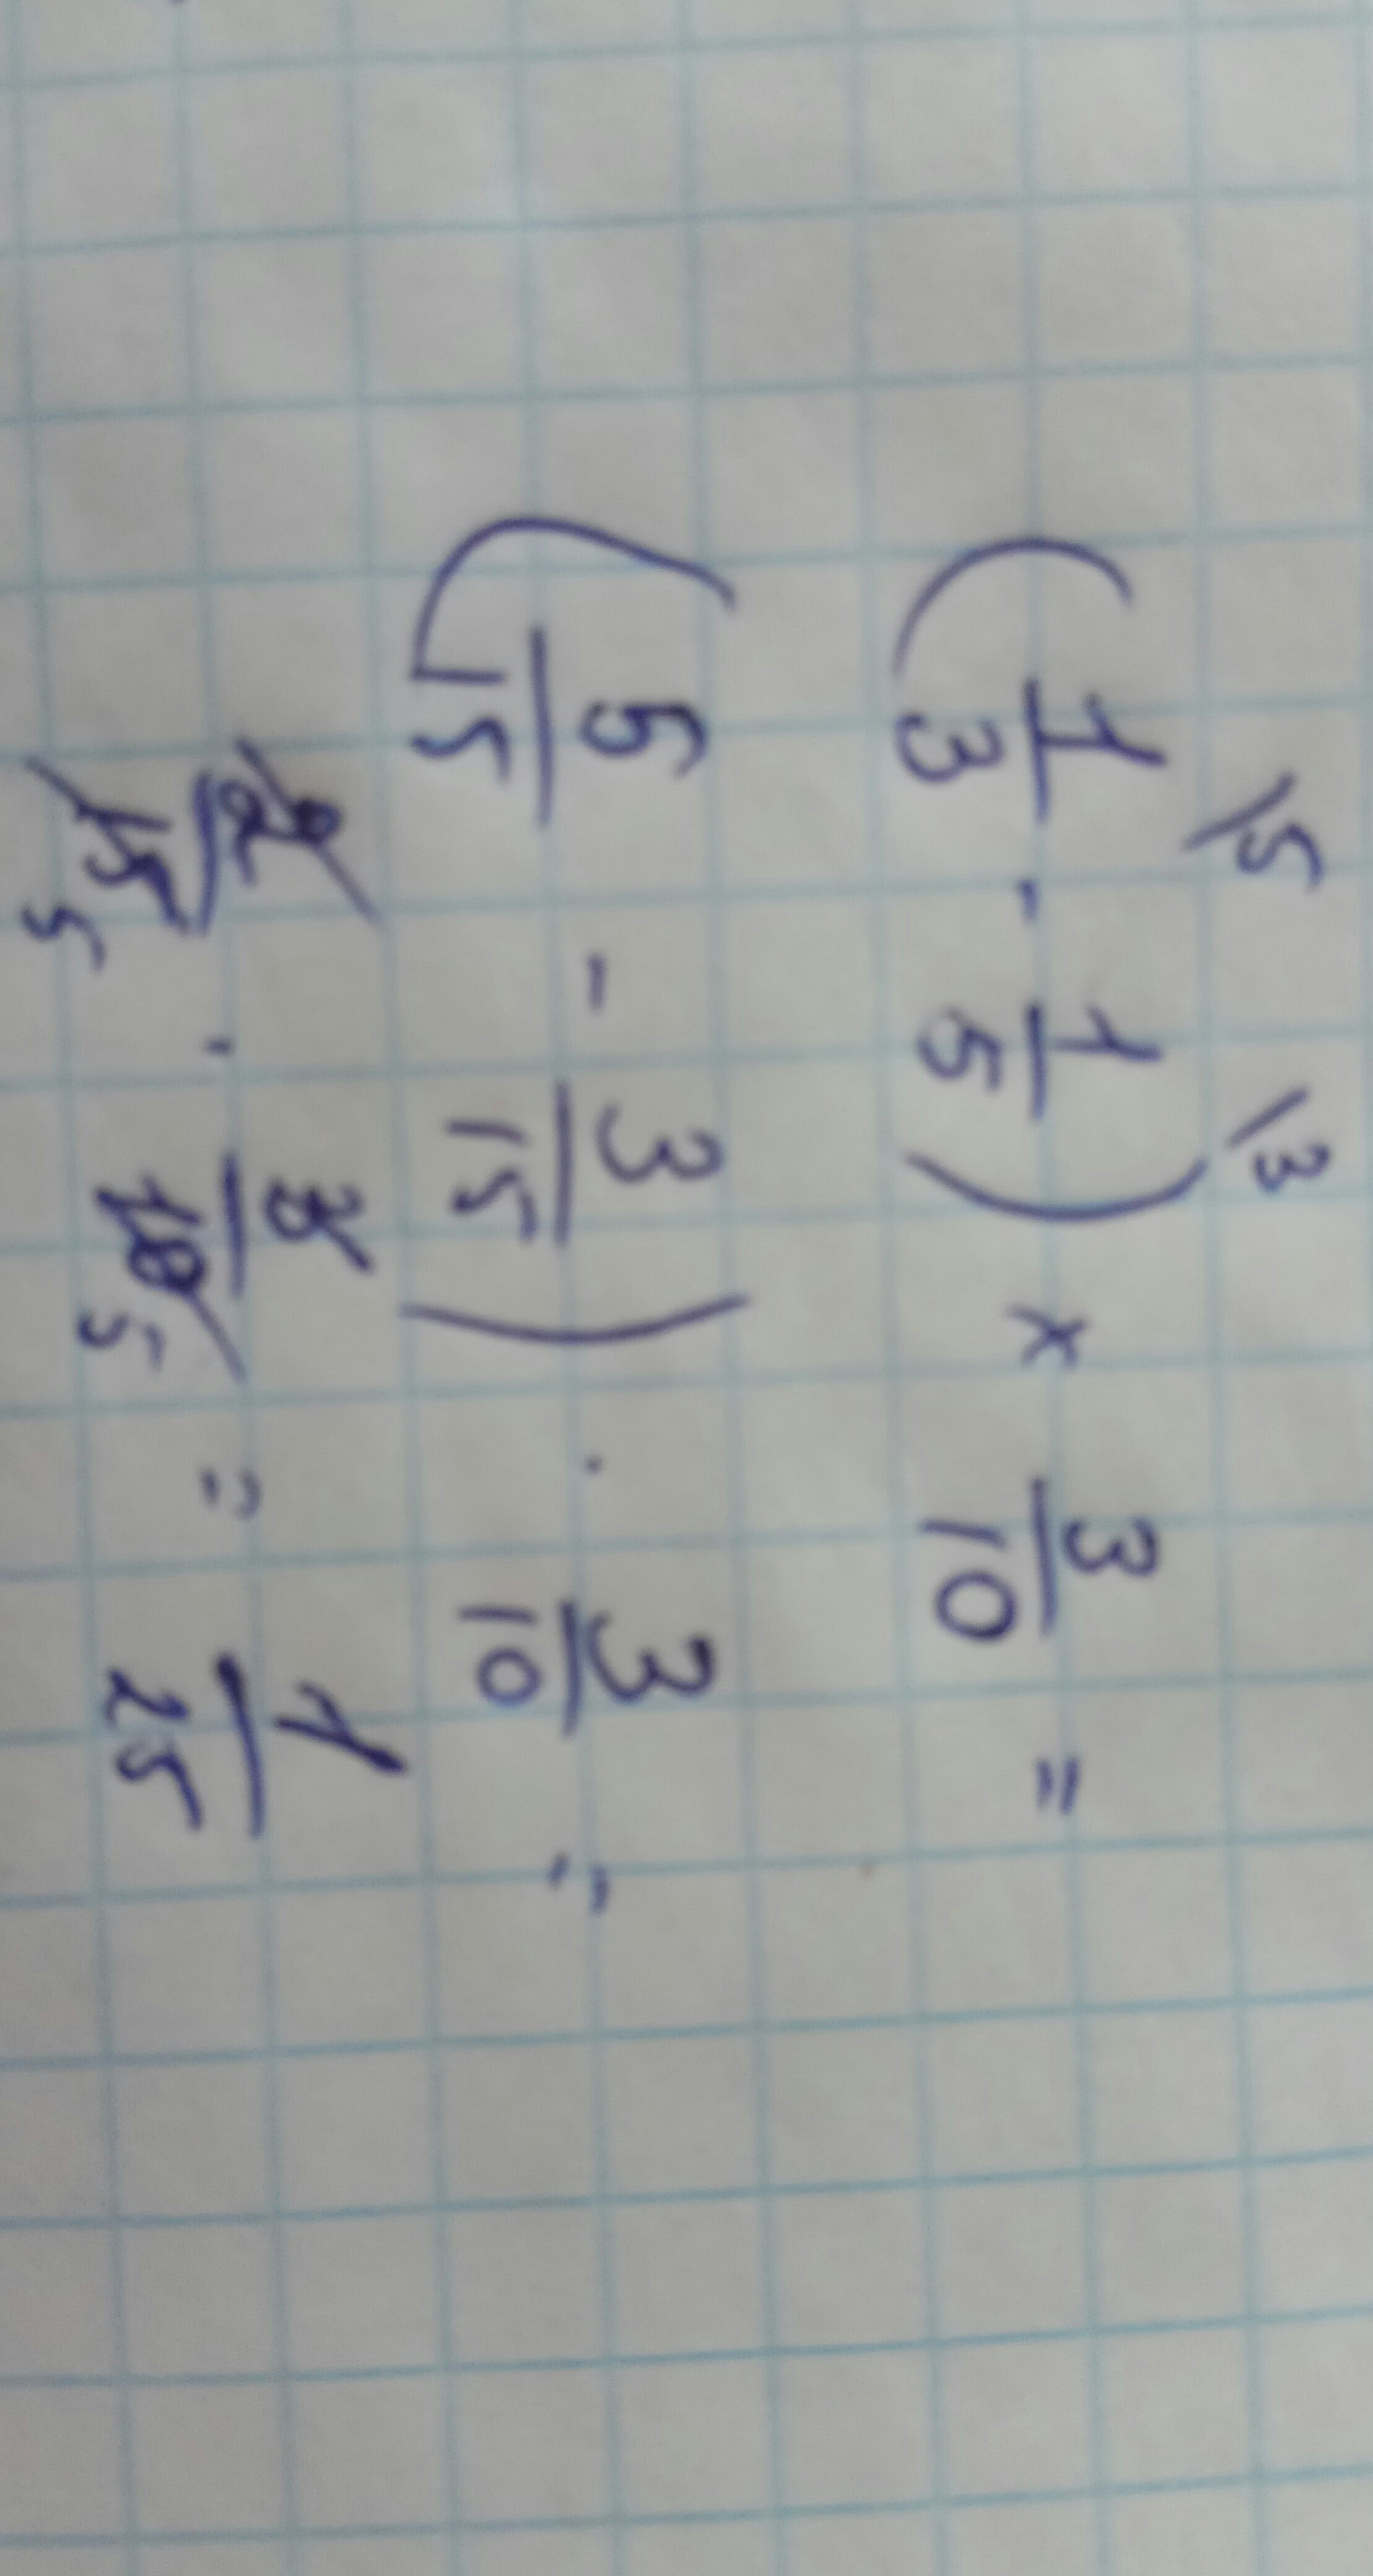 (1/3 \5 - 1/5 \3) x 3/10 =
(5/15 - 3/15) · 3/10 =
2/15 5 · 3/10 5 = 1/25